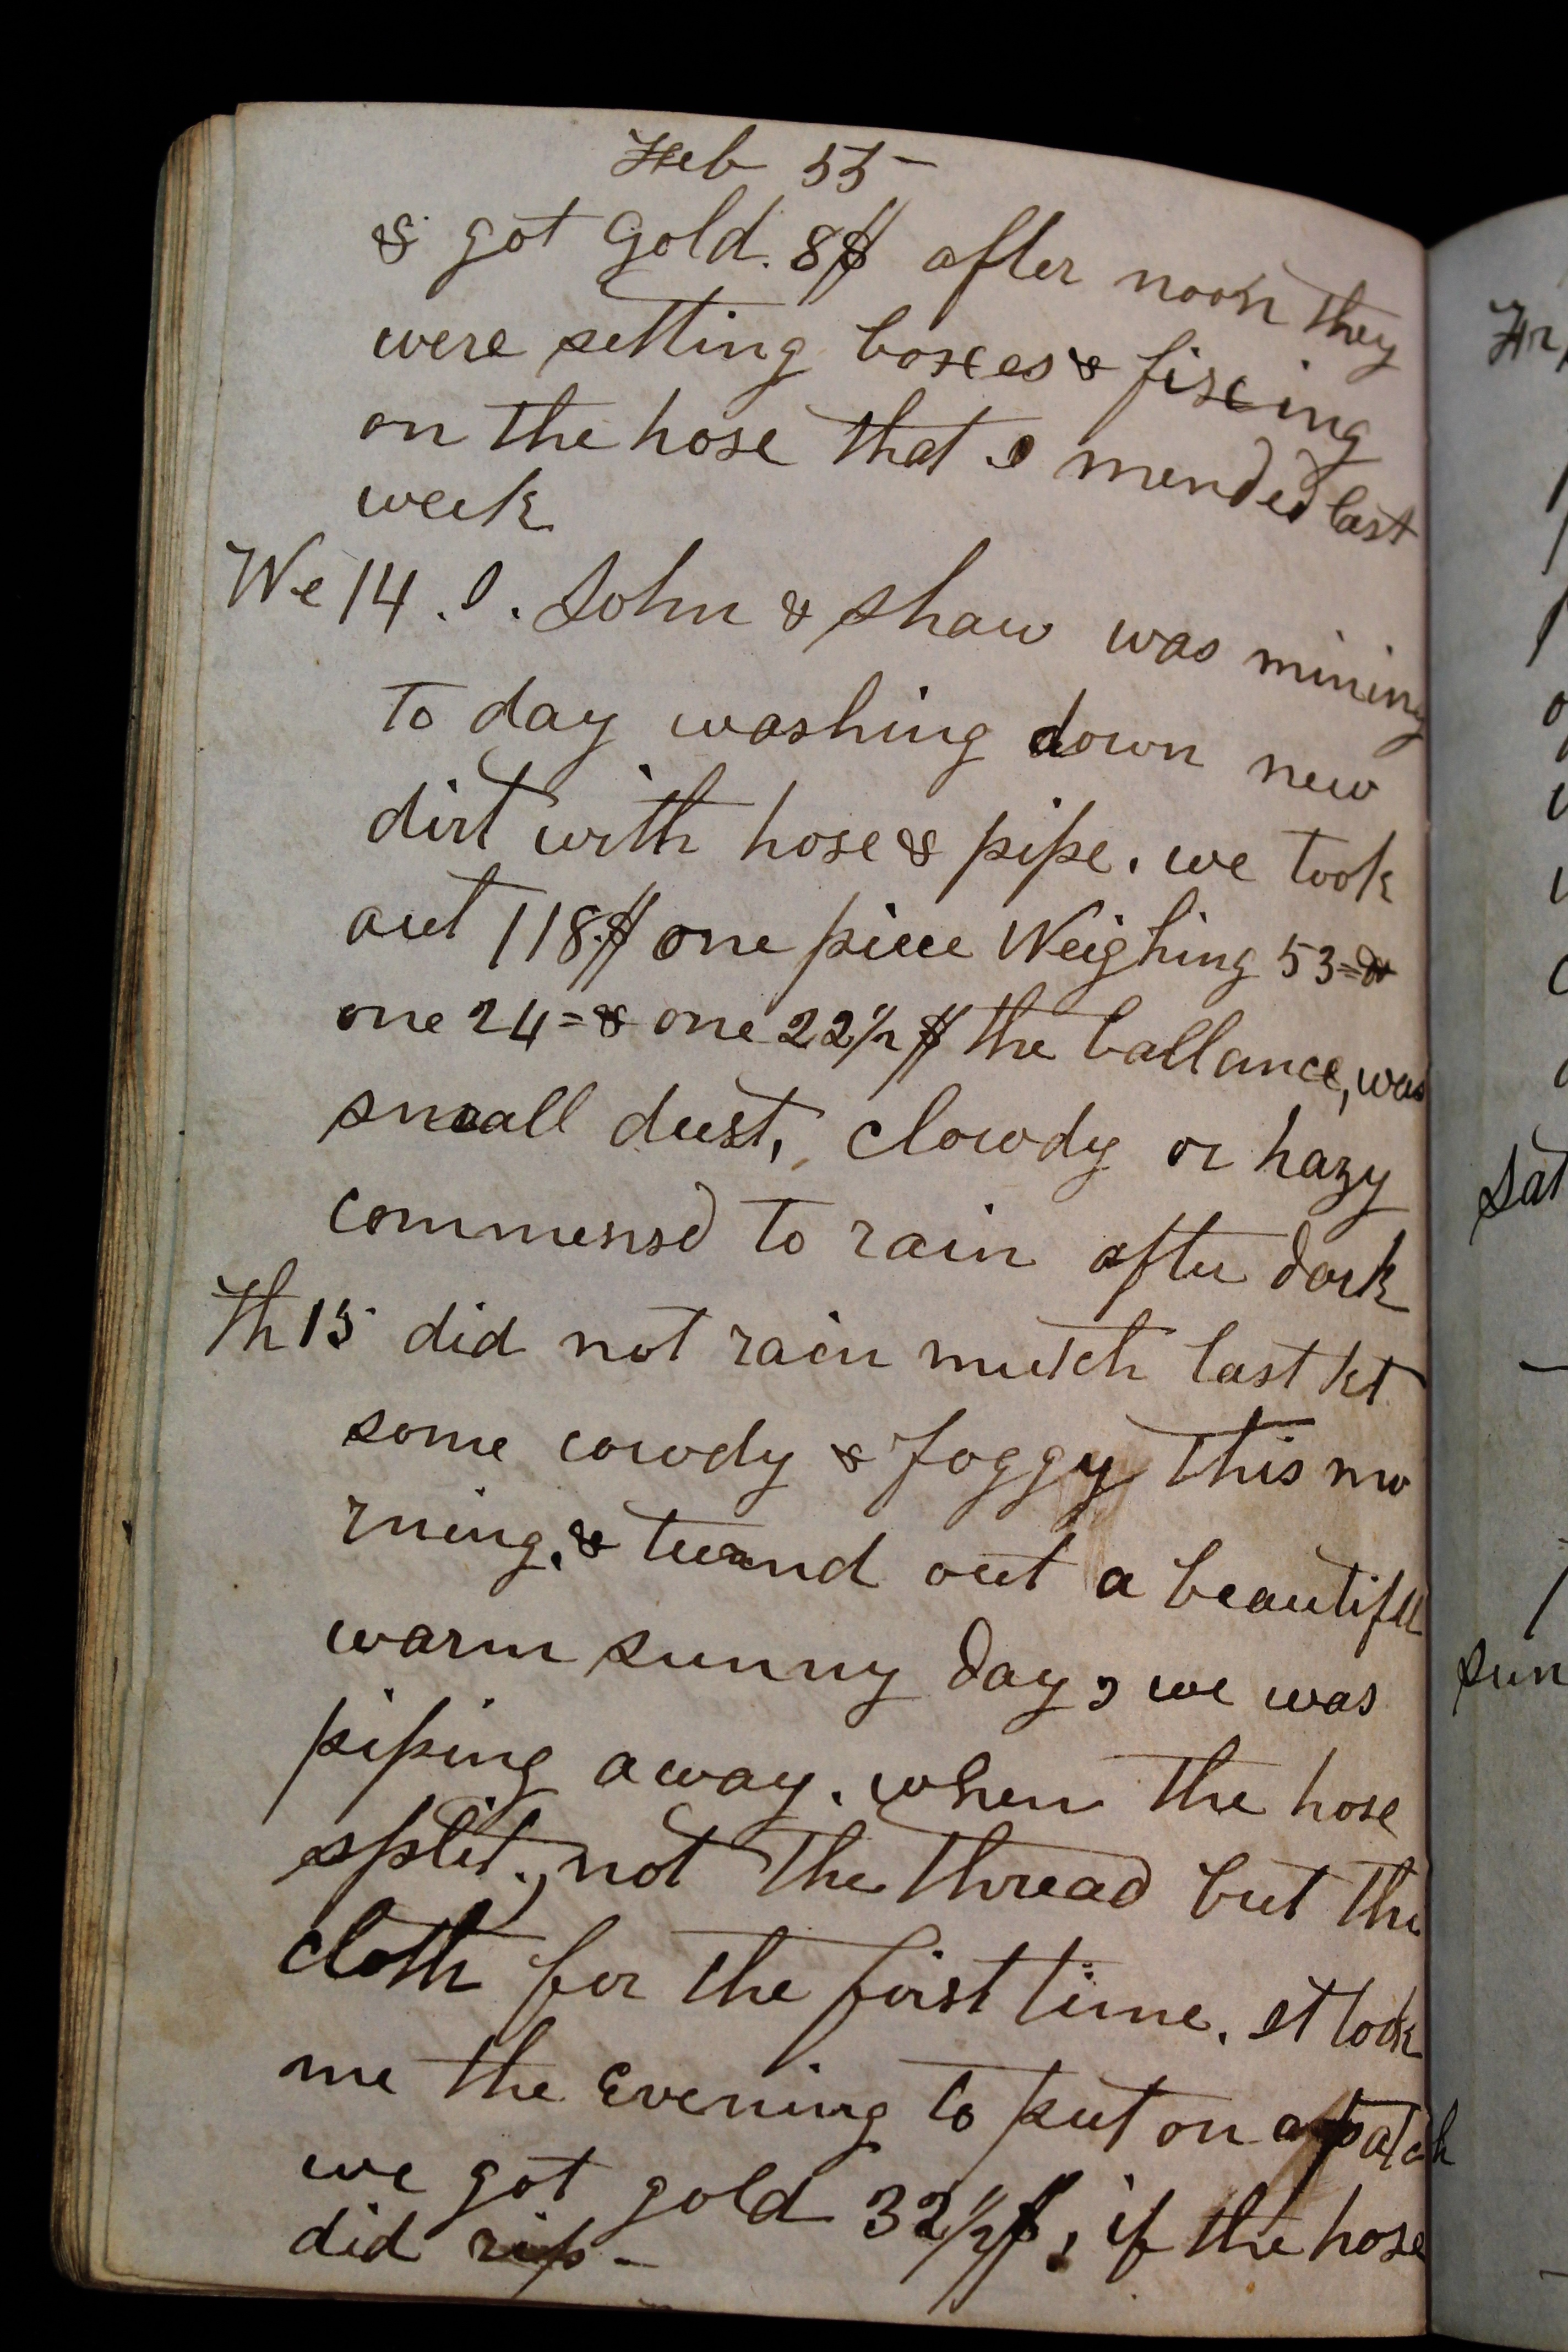 Feb 55-
& got gold. 8$ after noon they
were setting boxes & fixing
on the hose that I mended last
week
We 14. I. John & Shaw was mining
to day washing down new
dirt with hose & pipe. we took
out 118.$ one piece Weighing 53=&
one 24=& one 22½$ the ballance, was
small dust, clowdy or hazy
commensd to rain after dark
Th 15 did not rain mutch last nt
some cowdy & foggy this mo
rning, & turnd out a beautifll
warm sunny day, we was
piping away. when the hose
split., not the thread but the
cloth for the first time. It took
me the Evening to put on a patch
we got gold 32½$, if the hose
did rip -
Fr
Sat
Sun